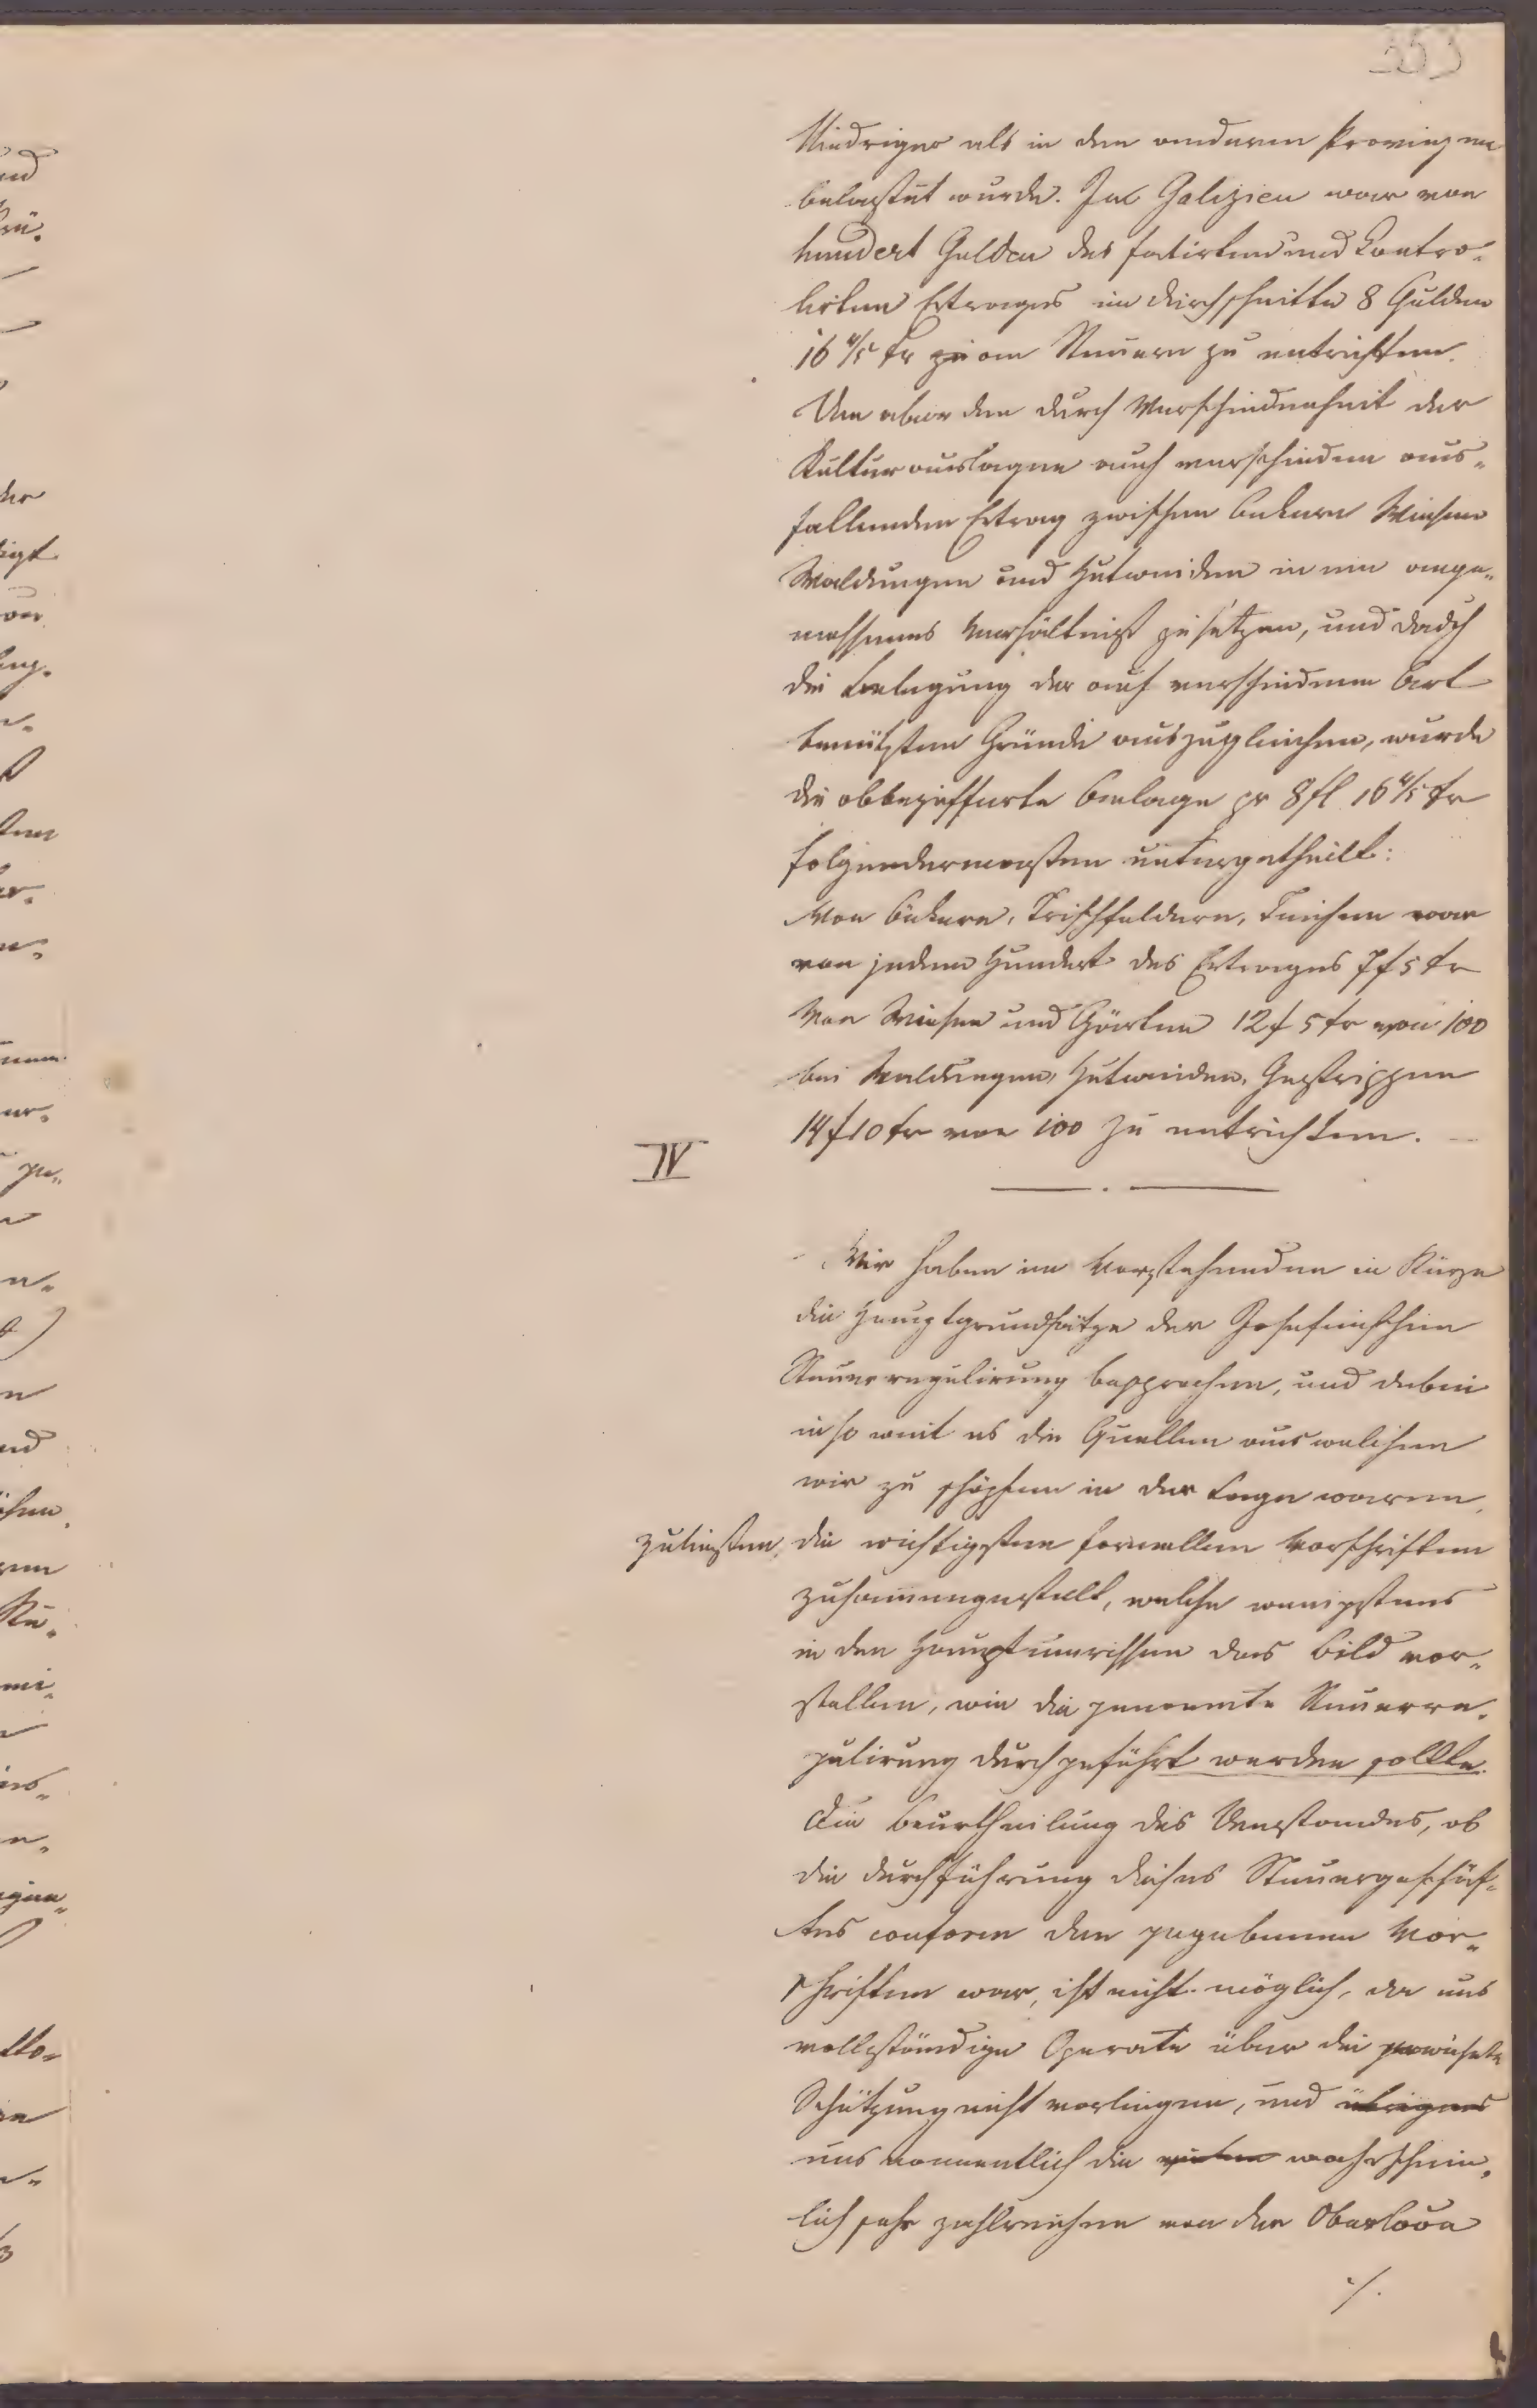 353
Niedriger als in den anderen Provinzen
belastet wurde. In Galizien war von
hundert Gulden des fatirten und kontro-
lirten Ertrages im durchschnitte 8 Gulden
16 4/5 kr an Steuern zu entrichten.
Um aber den durch Verschiedenheit der
Kulturauslagen auch verschieden aus-
fallenden Ertrag zwischen Äckern Wiesen
Waldungen und Hutweiden in ein ange-
messenes Verhältniß zu setzen, und dadch
die Belegung der auf verschiedene Art
benützten Gründe auszugleichen, wurde
die obbezifferte Anlage pr 8 fl 16 4/5 kr
folgendermassen untergetheilt:
Von Äckern, Trischfeldern, Teichen war
von jedem Hundert des Ertrages 7 f 5 kr
Von Wiesen und Gärten 12 f 5 kr von 100
bei Waldungen, Hutweiden, Gestrippen
14 f 10 kr von 100 zu entrichten.
IV
Wir haben im Vorstehenden in Kürze
die Hauptgrundsätze der Josefinischen
Steuerregulirung besprochen, und dabei
in so weit es die Quellen aus welchen
wir zu schöpfen in der Lage waren,
zuließen, die wichtigsten formellen Vorschriften
zusammengestellt, welche wenigstens
in den Hauptumrissen das Bild vor-
stellen, wie die genannte Steuerre-
gulirung durchgeführt werden sollte.
Die Beurtheilung des Umstandes, ob
die Durchführung dieses Steuergeschäf-
tes conform den gegebenen Vor-
schriften war, ist nicht möglich, da uns
vollständige Operate über die
Schätzung nicht vorliegen, und übrigens
uns namentlich die vielen wahrschein-
lich sehr zahlreichen von der
./.